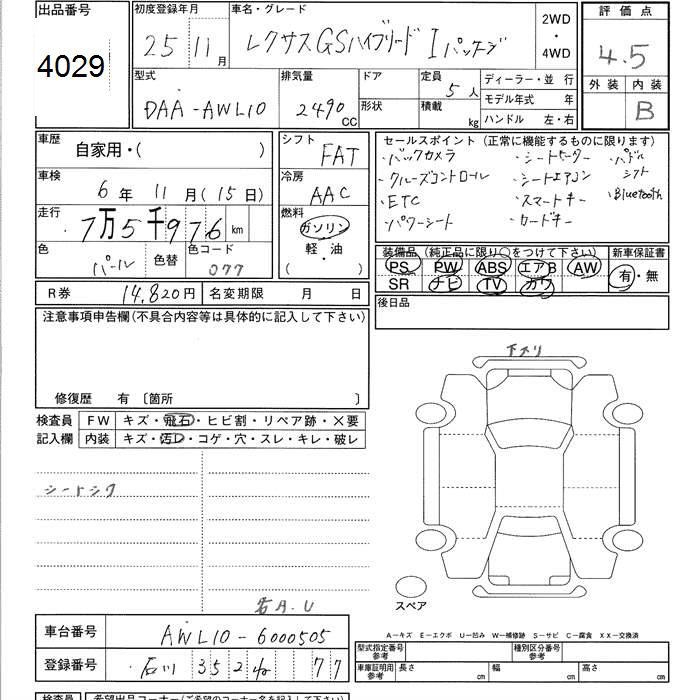 出品番号
4029
初度登録年月
25 11月
車名・グレード
レクサスGSハイブリード Iパッケージ
2WD
・
4WD
評価点
4.5
外装 内装
B
型式
DAA-AWL10
排気量
2490cc
ドア
形状
定員
5人
積載
kg
ディーラー・並 行
モデル年式 年
ハンドル 左・右
車歴
自家用・( )
車検
6年 11月(15日)
走行
7万5千976km
色
パール
色替
色コード
077
シフト
FAT
冷房
AAC
燃料
ガソリン
軽・油
( )
セールスポイント(正常に機能するものに限ります)
・バックカメラ ・シートヒーター ・パドルシフト
・クルーズコントロール ・シートエアコン ・Bluetooth
・ETC ・スマートキー
・パワーシート ・カードキー
装備品(純正品に限り○をつけて下さい)
PS PW ABS エアB AW
SR ナビ TV カワ
新車保証書
有・無
R券 14,820円
名変期限 月 日
後日品
注意事項申告欄(不具合内容等は具体的に記入して下さい)
修復歴 有 〔箇所 〕
検査員
記入欄
FW キズ・飛石・ヒビ割・リペア跡・×要
内装 キズ・汚レ・コゲ・穴・スレ・キレ・破レ
シートシワ
下スリ
スペア
A-キズ E-エクボ U-凹み W-補修跡 S-サビ C-腐食 XX-交換済
車台番号
AWL10-6000505
登録番号
石川 352 ね 77
型式指定番号
参考
種別区分番号
参考
車庫証明用
参考
長さ cm
幅 cm
高さ cm
検査員
希望出品コーナー(ご希望のコーナー名を記入して下さい)